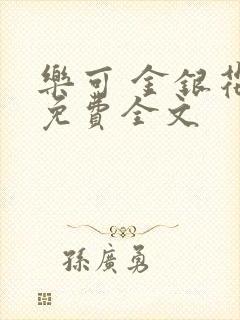 樂可 金銀花
免費全文
孫廣勇